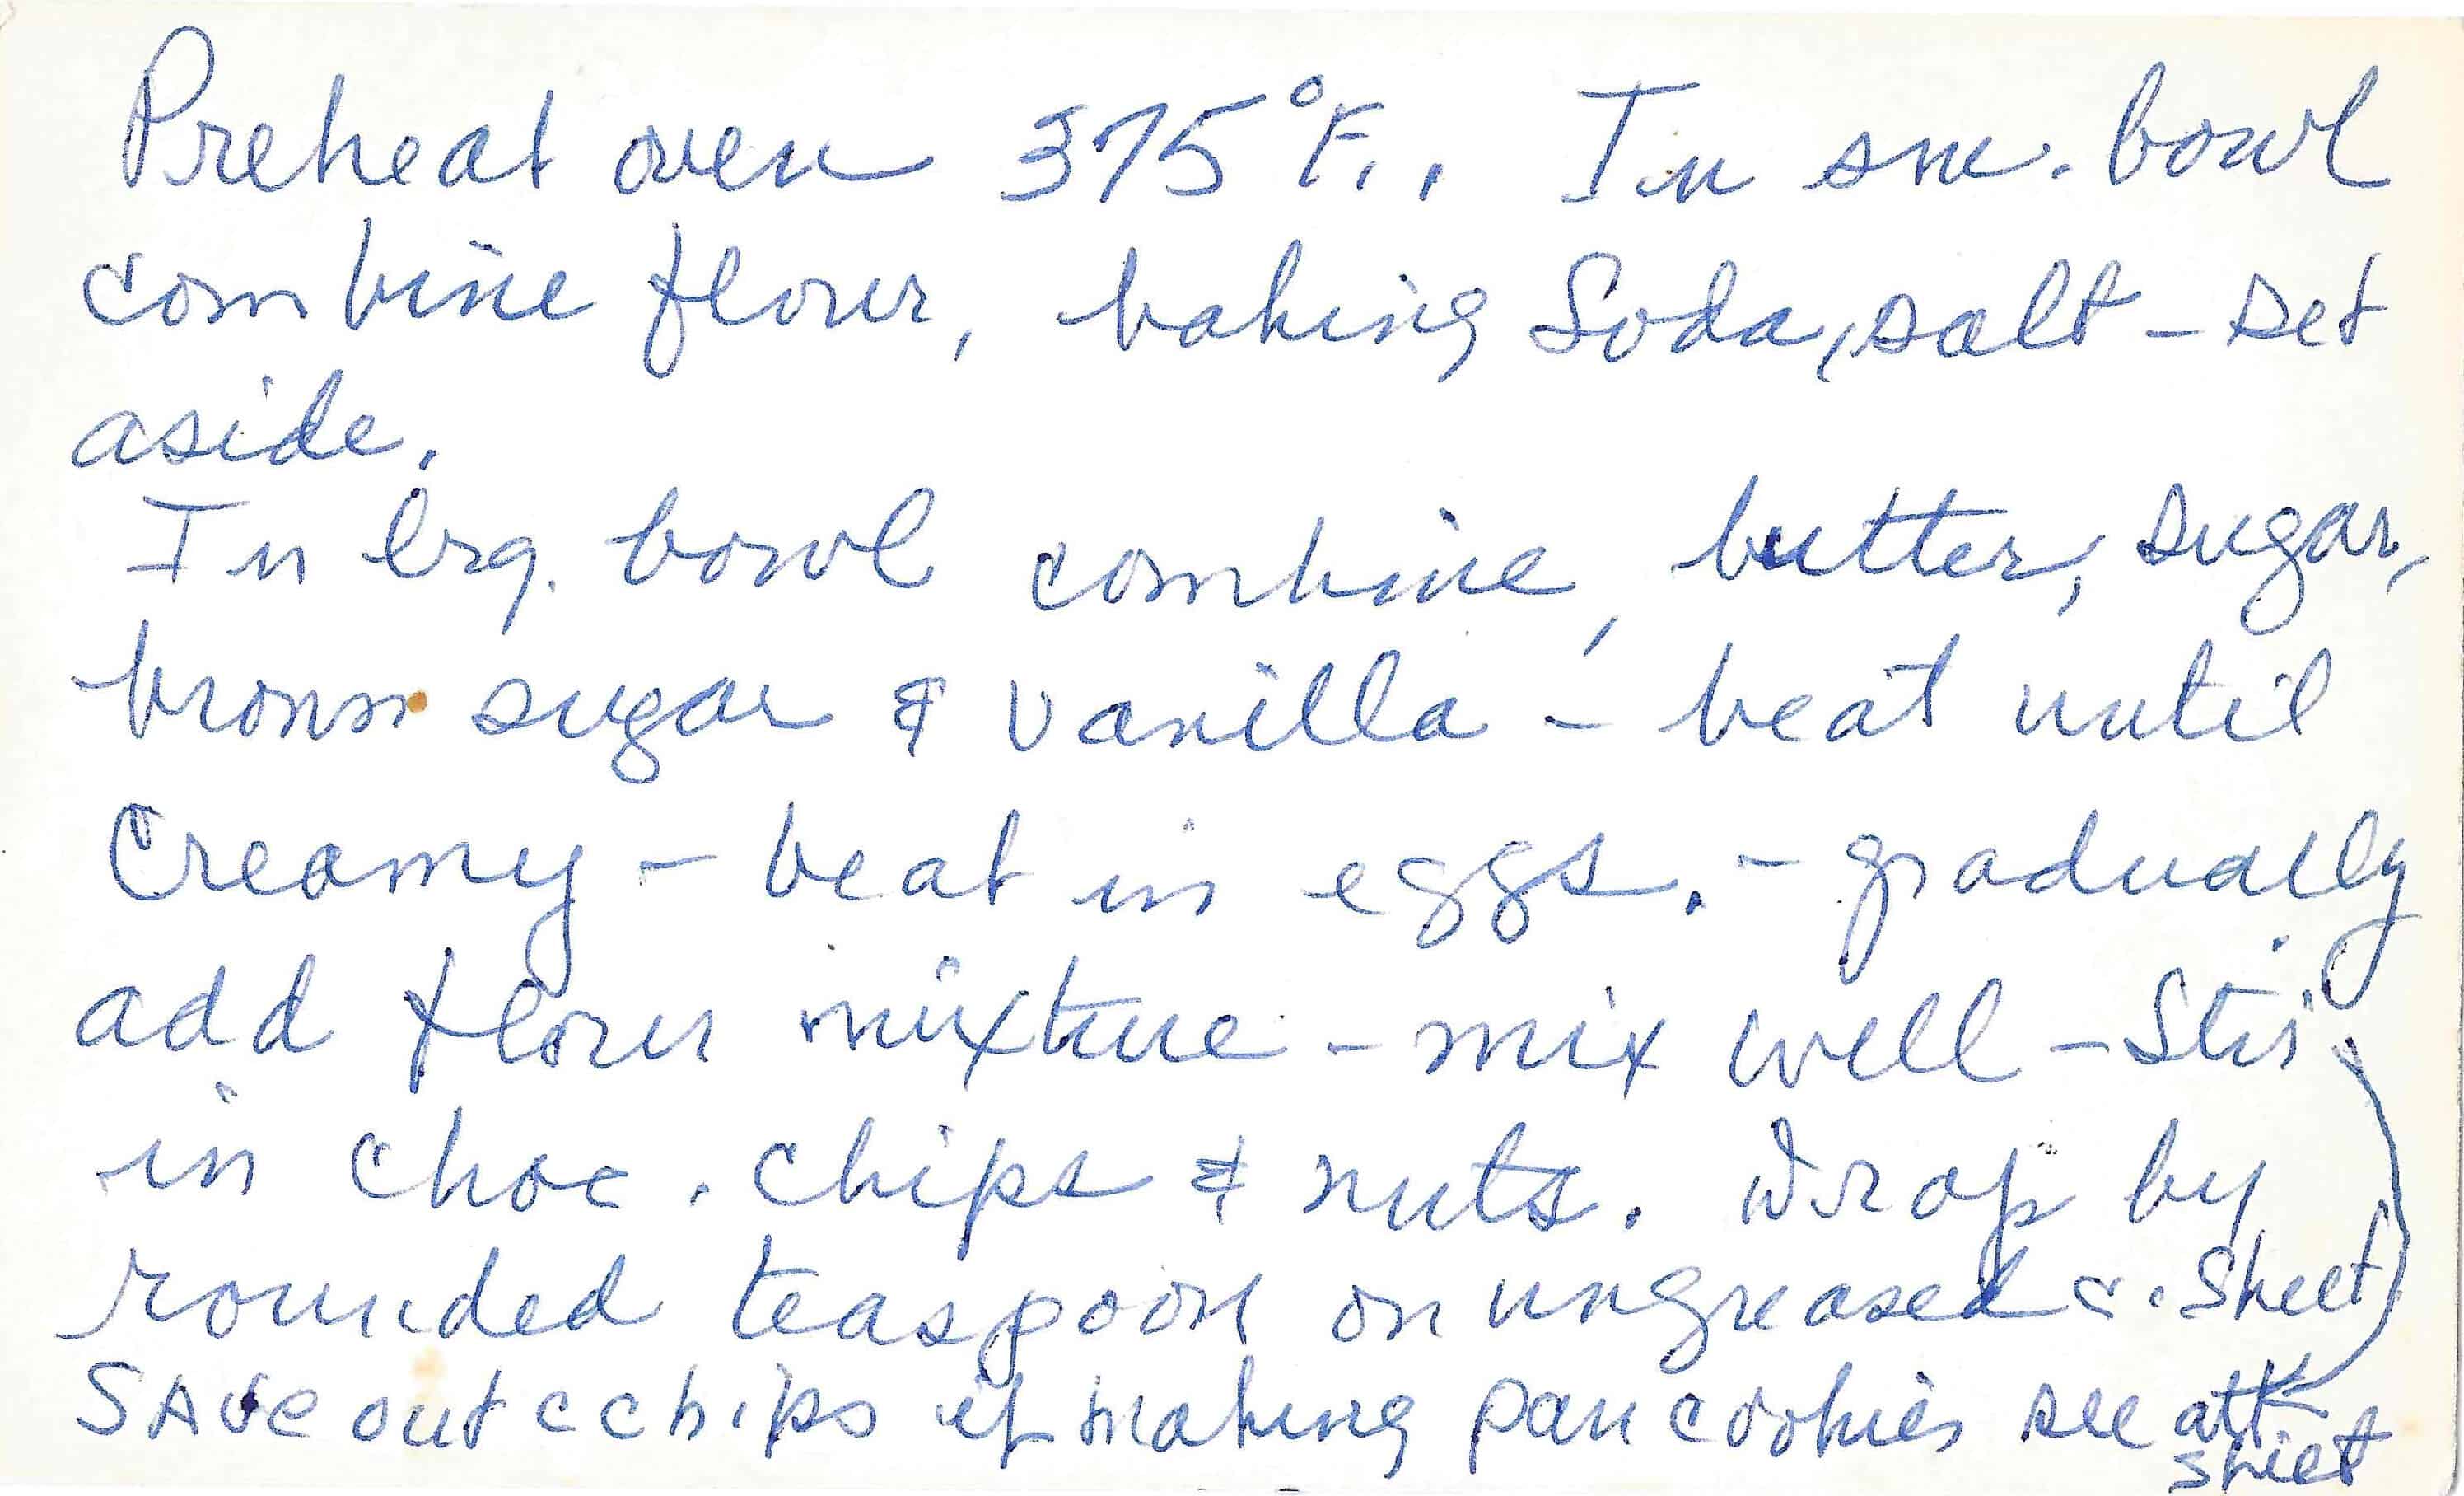 Preheat oven 375°F.. In sm. bowl
combine flour, baking Soda, salt - set
aside.
In lrg. bowl combine, butter, sugar,
brown sugar & vanilla - beat until
Creamy - beat in eggs. - gradually
add flour mixture - mix well - Stir
in choc. chips & nuts. Drop by
rounded teaspoon on ungreased c. Sheet
SAve out c chips if making pan cookies see att
sheet